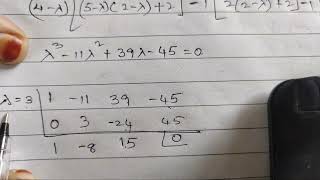 (4-λ)[(5-λ)(2-λ)+2]-1[2(2-λ)+2]-1
λ³-11λ²+39λ-45=0
λ=3 | 1 -11 39 -45
0 3 -24 45
1 -8 15 0